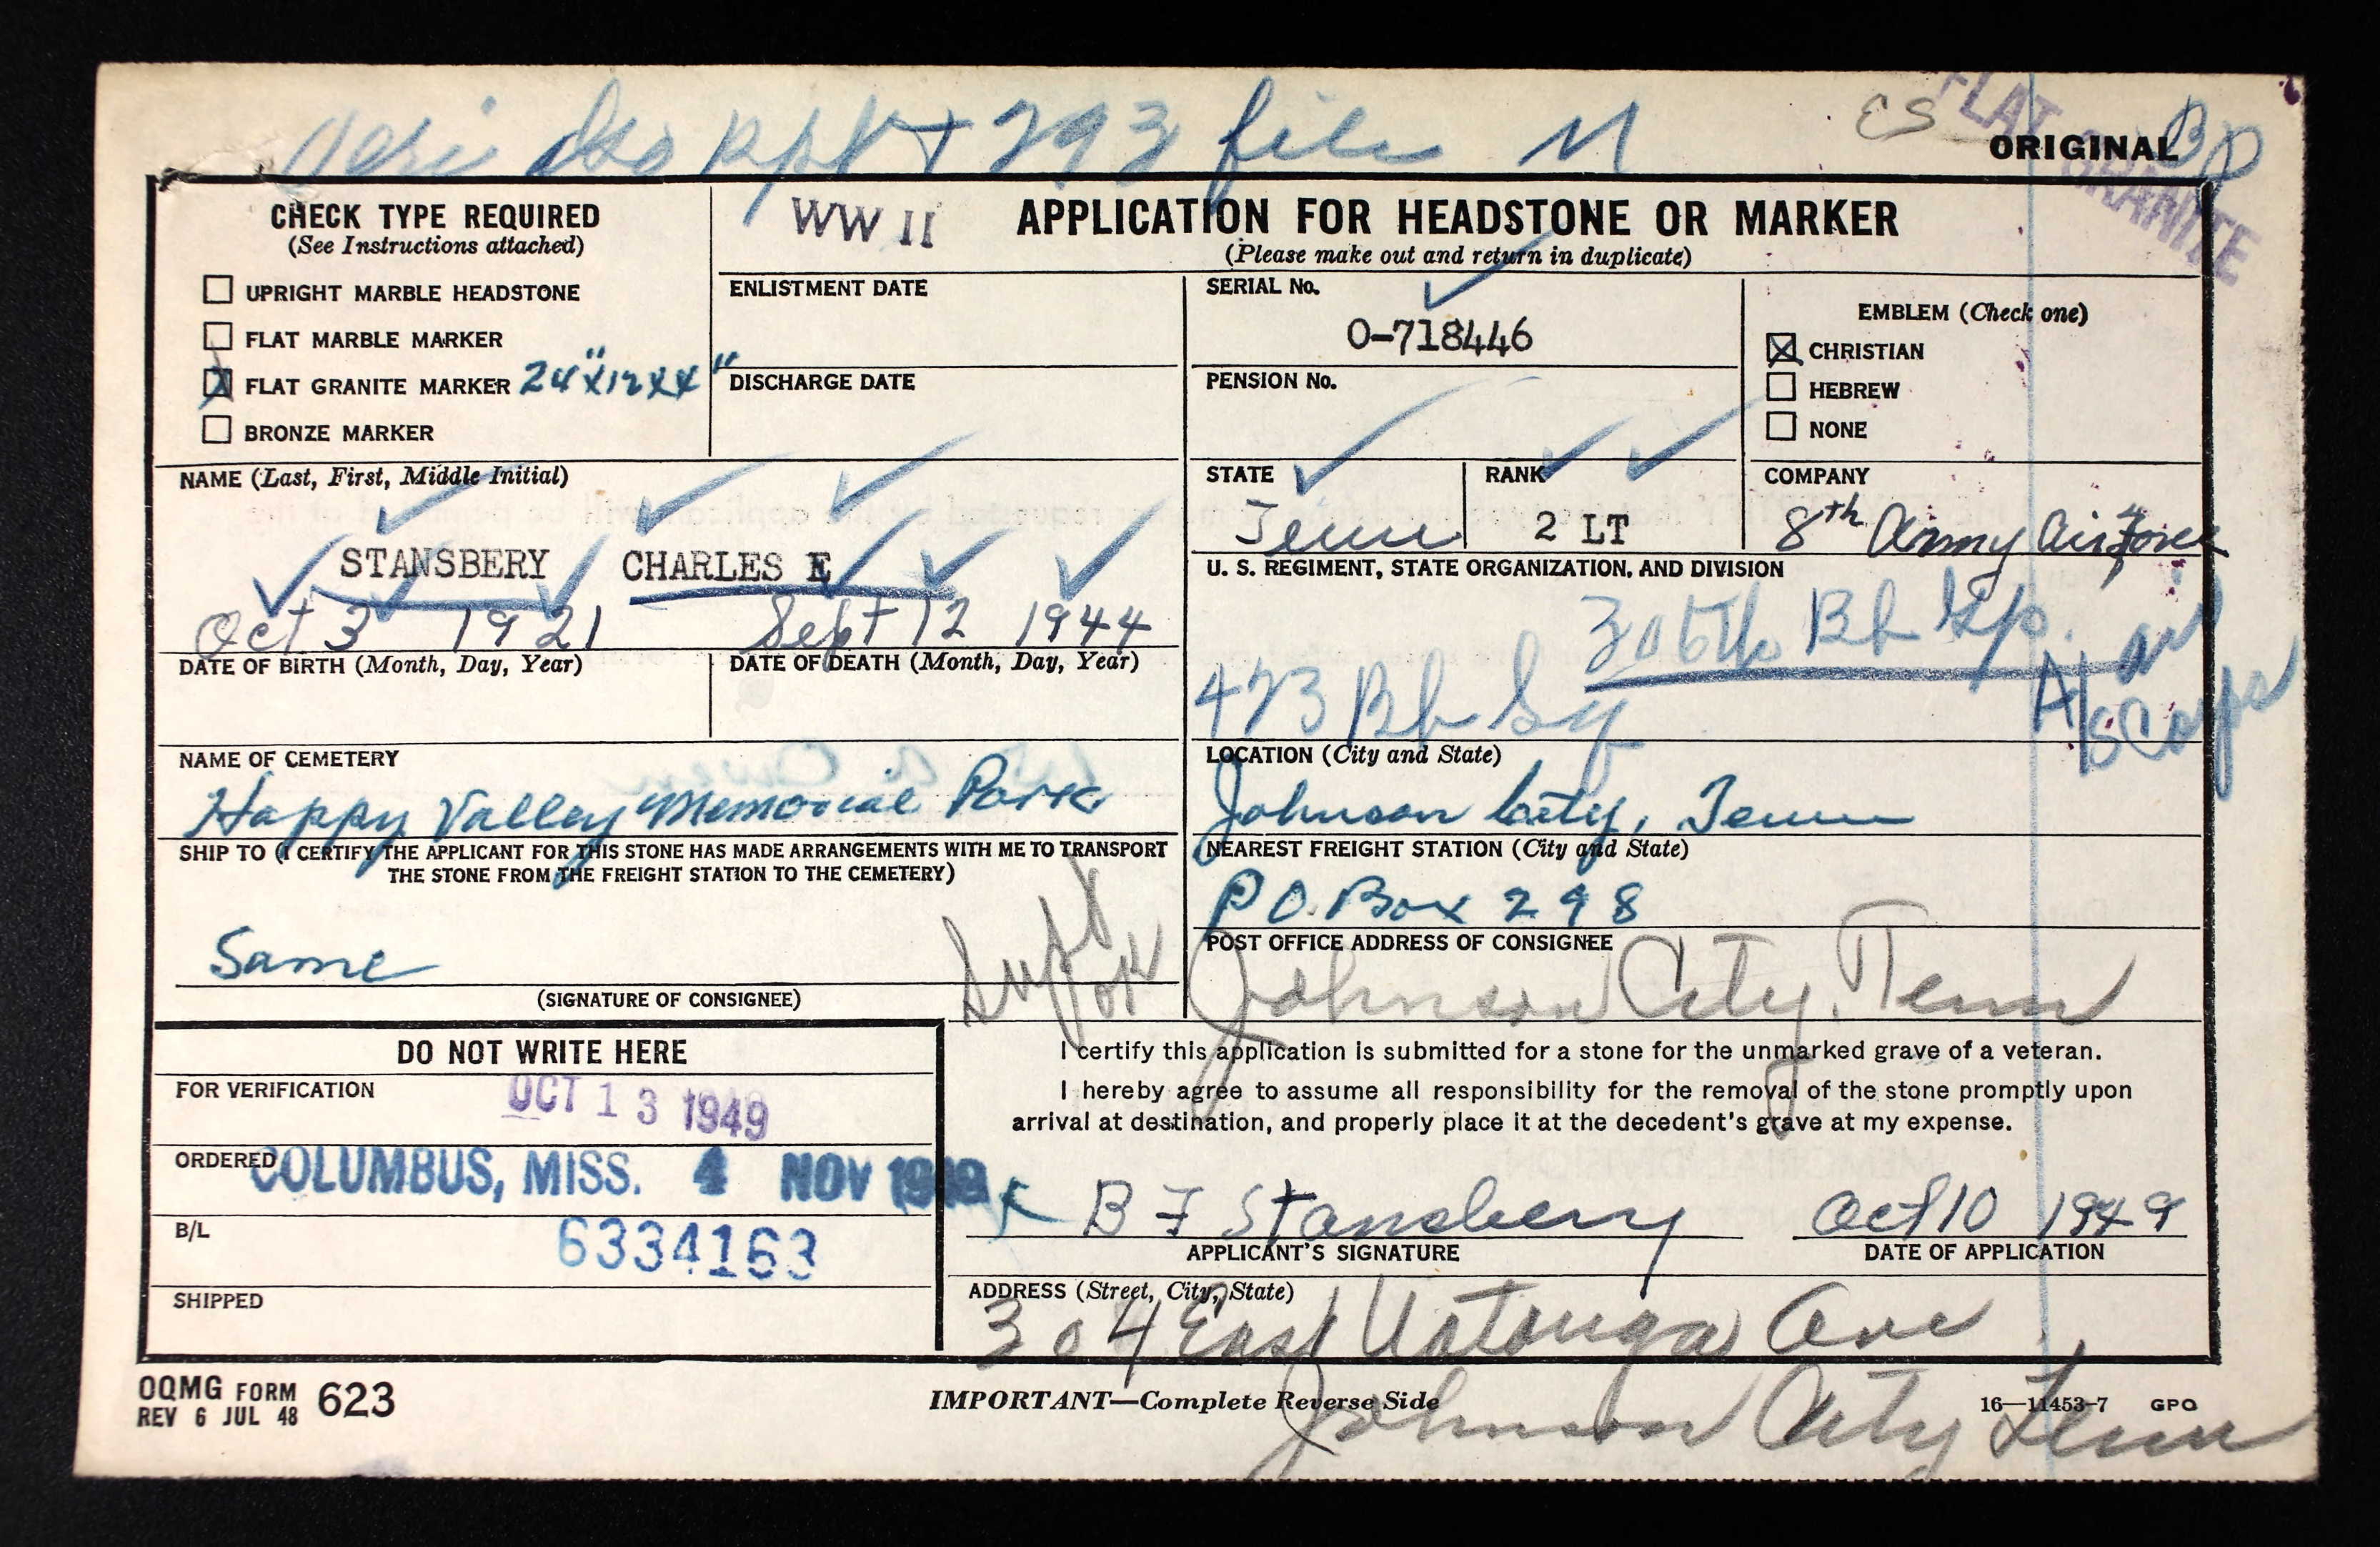 Veri dso Rpt + 293 file M
ES
FLAT GRANITE
BD
ORIGINAL
CHECK TYPE REQUIRED
(See Instructions attached)
UPRIGHT MARBLE HEADSTONE
FLAT MARBLE MARKER
X FLAT GRANITE MARKER 24"x12x4"
BRONZE MARKER
WW II
APPLICATION FOR HEADSTONE OR MARKER
(Please make out and return in duplicate)
ENLISTMENT DATE
DISCHARGE DATE
SERIAL No.
O-718446
PENSION No.
EMBLEM (Check one)
X CHRISTIAN
HEBREW
NONE
NAME (Last, First, Middle Initial)
STANSBERY CHARLES E
Oct 3 1921 Sept 12 1944
DATE OF BIRTH (Month, Day, Year)
DATE OF DEATH (Month, Day, Year)
STATE
Tenn
RANK
2 LT
COMPANY
8th Army Air Force
U. S. REGIMENT, STATE ORGANIZATION, AND DIVISION
305th Bb Gp. air
473 Bb Sq
A/S Corps
NAME OF CEMETERY
Happy Valley Memorial Park
LOCATION (City and State)
Johnson City, Tenn
SHIP TO (I CERTIFY THE APPLICANT FOR THIS STONE HAS MADE ARRANGEMENTS WITH ME TO TRANSPORT
THE STONE FROM THE FREIGHT STATION TO THE CEMETERY)
Same
Supt
OK
(SIGNATURE OF CONSIGNEE)
NEAREST FREIGHT STATION (City and State)
P O. Box 298
POST OFFICE ADDRESS OF CONSIGNEE
Johnson City, Tenn
DO NOT WRITE HERE
FOR VERIFICATION
OCT 13 1949
ORDERED
COLUMBUS, MISS. 4 NOV 1949
B/L
6334163
SHIPPED
I certify this application is submitted for a stone for the unmarked grave of a veteran.
I hereby agree to assume all responsibility for the removal of the stone promptly upon
arrival at destination, and properly place it at the decedent's grave at my expense.
x B F Stansbery
APPLICANT'S SIGNATURE
Oct 10 1949
DATE OF APPLICATION
ADDRESS (Street, City, State)
304 East Watauga Ave
Johnson City Tenn
OQMG FORM 623
REV 6 JUL 48
IMPORTANT—Complete Reverse Side
16—11453-7 GPO